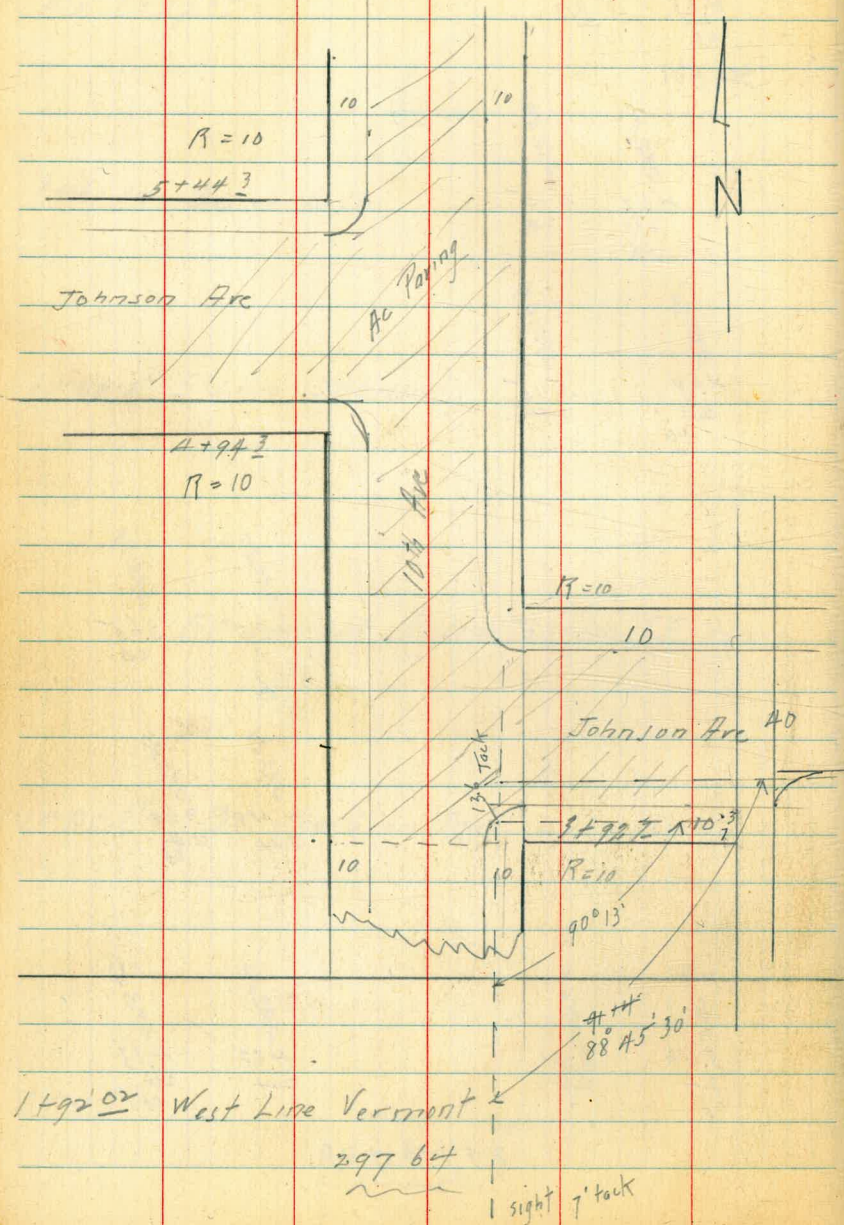 10
10
R = 10
5+44 3
N
Johnson Ave
Ac Paving
4+94 3
R = 10
10th Ave
R = 10
10
Johnson Ave
40
13.6 Tack
3+92 7
10
10
R = 10
90° 13'
88° 45' 30"
1+92 02 West Line Vermont
297 64
sight 7' tack